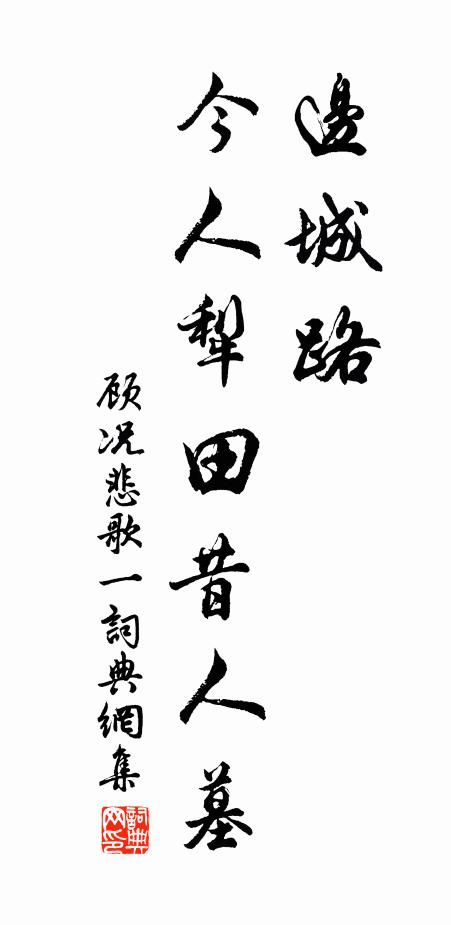 邊城路
今人犁田昔人墓
顾况悲歌一詞典網集
詞典网印